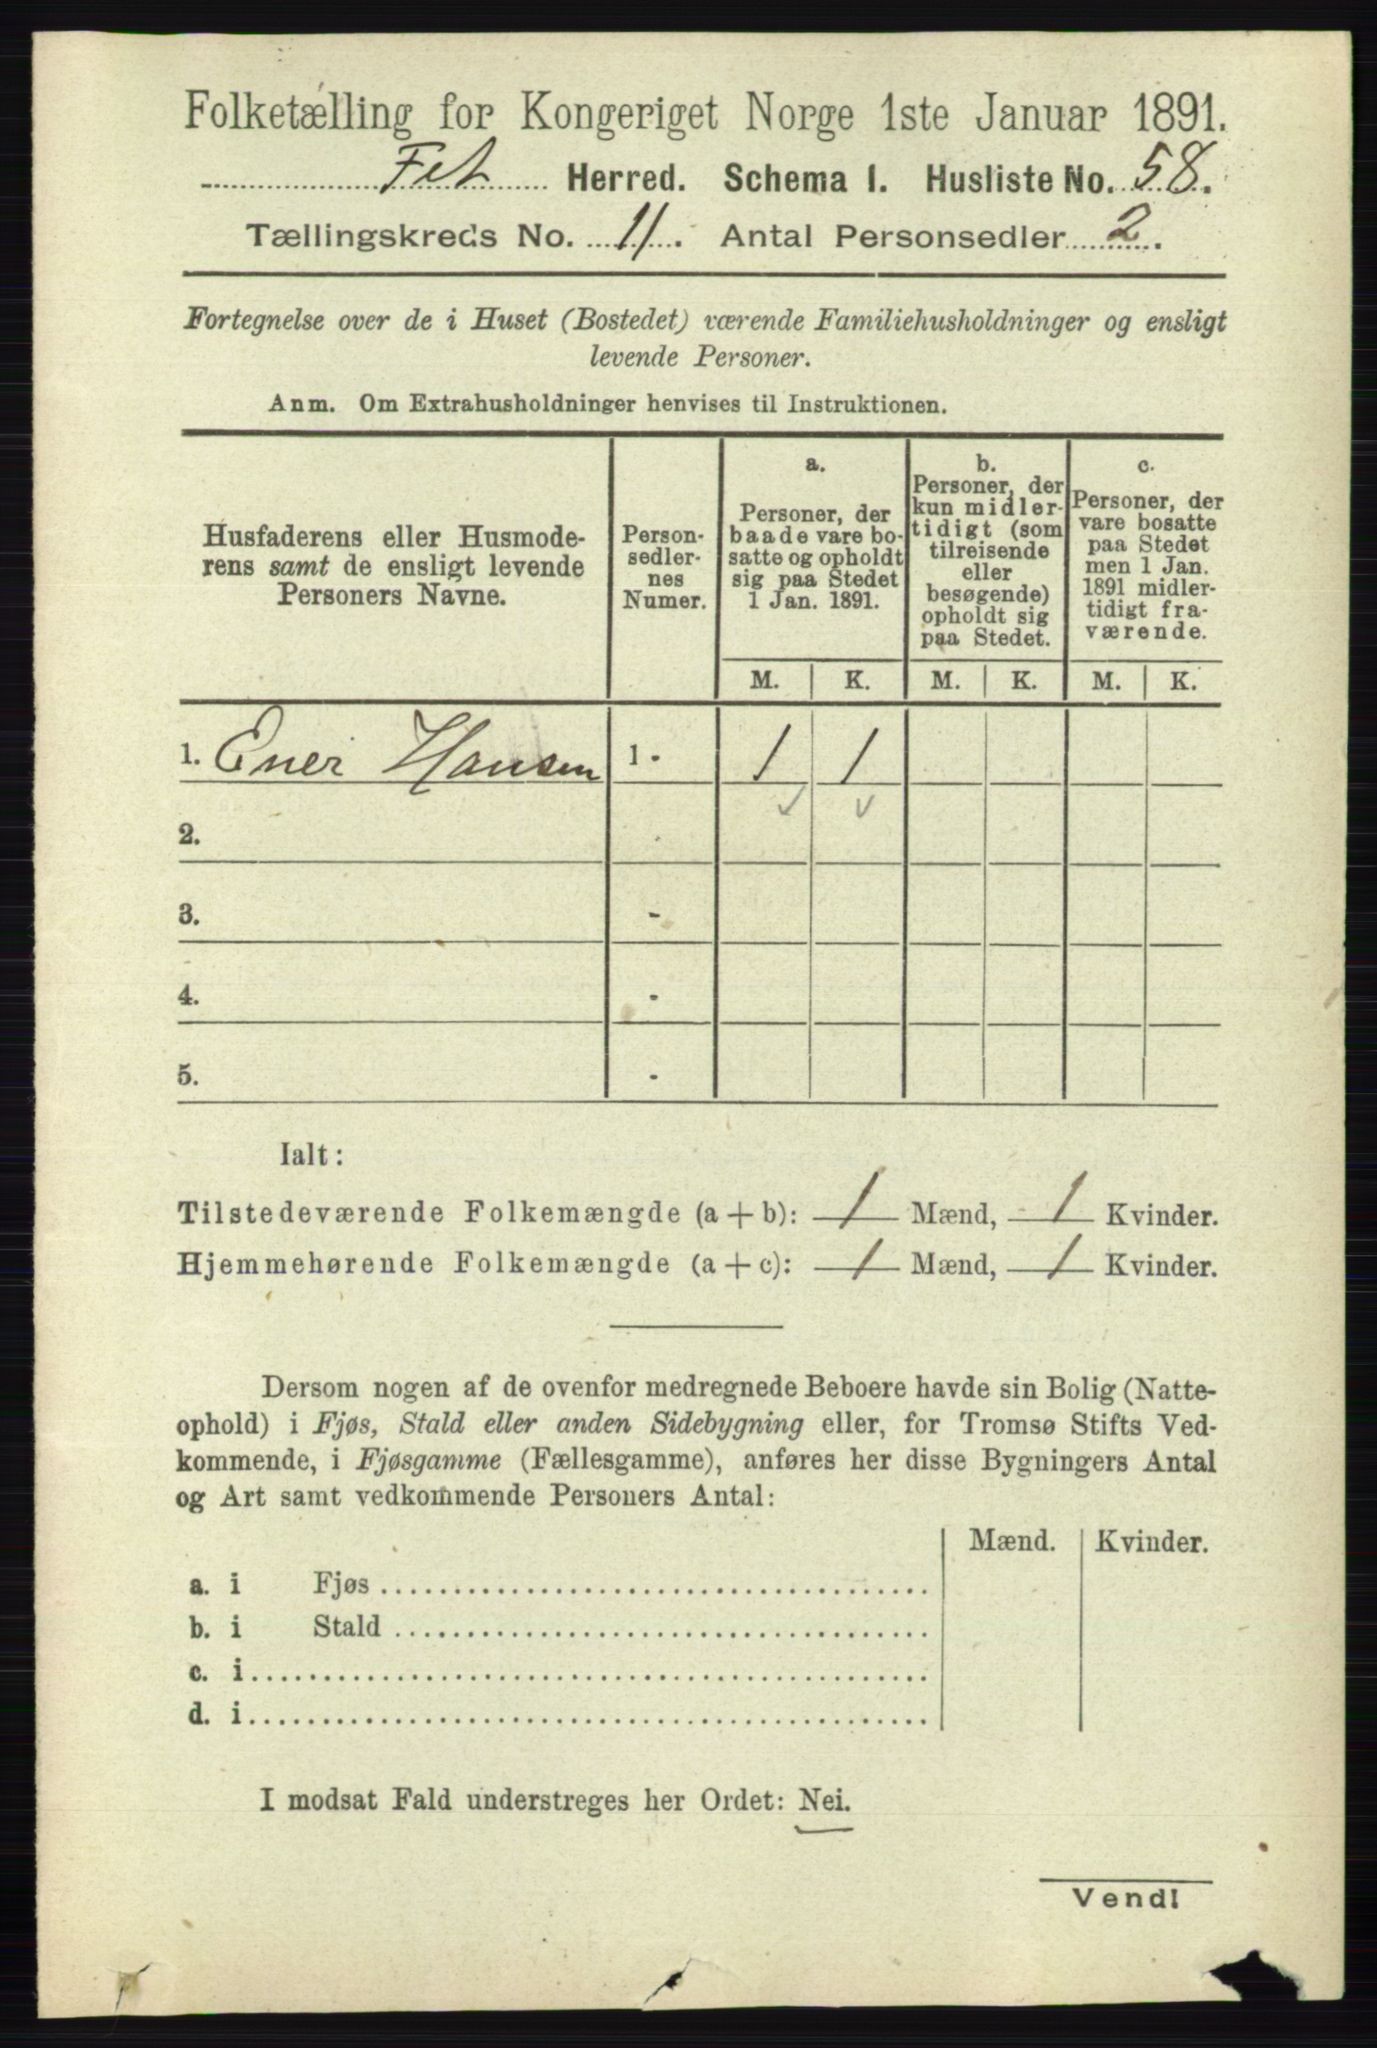 Folketælling for Kongeriget Norge 1ste Januar 1891.
Fet Herred. Schema I. Husliste No. 58.
Tællingskreds No. 11. Antal Personsedler 2.
Fortegnelse over de i Huset (Bostedet) værende Familiehusholdninger og ensligt
levende Personer.
Anm. Om Extrahusholdninger henvises til Instruktionen.
Husfaderens eller Husmode-
rens samt de ensligt levende
Personers Navne.
Person-
sedler-
nes
Numer.
a.
Personer, der
baade vare bo-
satte og opholdt
sig paa Stedet
1 Jan. 1891.
b.
Personer, der
kun midler-
tidigt (som
tilreisende
eller
besøgende)
opholdt sig
paa Stedet.
c.
Personer, der
vare bosatte
paa Stedet
men 1 Jan.
1891 midler-
tidigt fra-
værende.
M. K. M. K. M. K.
1. Ener Hansen 1 - 1 1
2.
3. -
4. -
5. -
Ialt:
Tilstedeværende Folkemængde (a + b): 1 Mænd, 1 Kvinder.
Hjemmehørende Folkemængde (a + c): 1 Mænd, 1 Kvinder.
Dersom nogen af de ovenfor medregnede Beboere havde sin Bolig (Natte-
ophold) i Fjøs, Stald eller anden Sidebygning eller, for Tromsø Stifts Ved-
kommende, i Fjøsgamme (Fællesgamme), anføres her disse Bygningers Antal
og Art samt vedkommende Personers Antal:
Mænd. Kvinder.
a. i Fjøs
b. i Stald
c. i
d. i
I modsat Fald understreges her Ordet: Nei.
Vend!